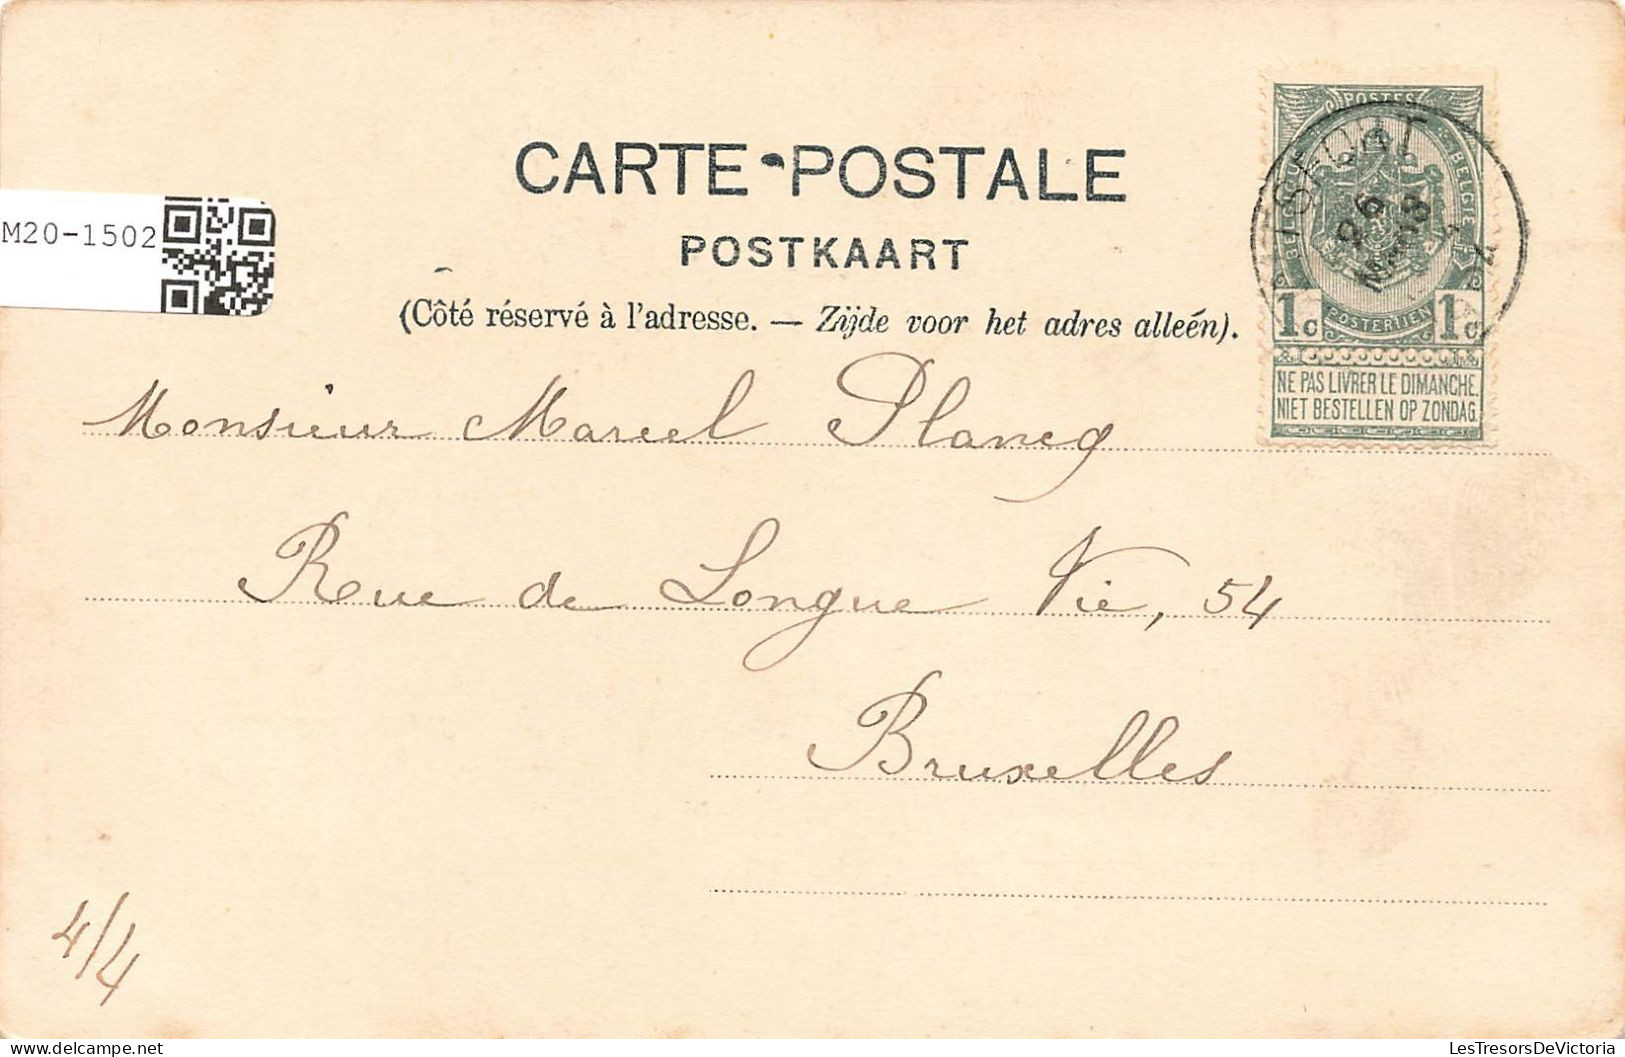 CARTE POSTALE
POSTKAART
(Côté réservé à l'adresse. — Zijde voor het adres alleén).
M20-1502
POSTES
BELGIQUE BELGIE
26
1c POSTERIJEN 1c
NE PAS LIVRER LE DIMANCHE
NIET BESTELLEN OP ZONDAG
Monsieur Marcel Plancq
Rue de Longue Vie, 54
Bruxelles
4/4
LesTresorsDeVictoria